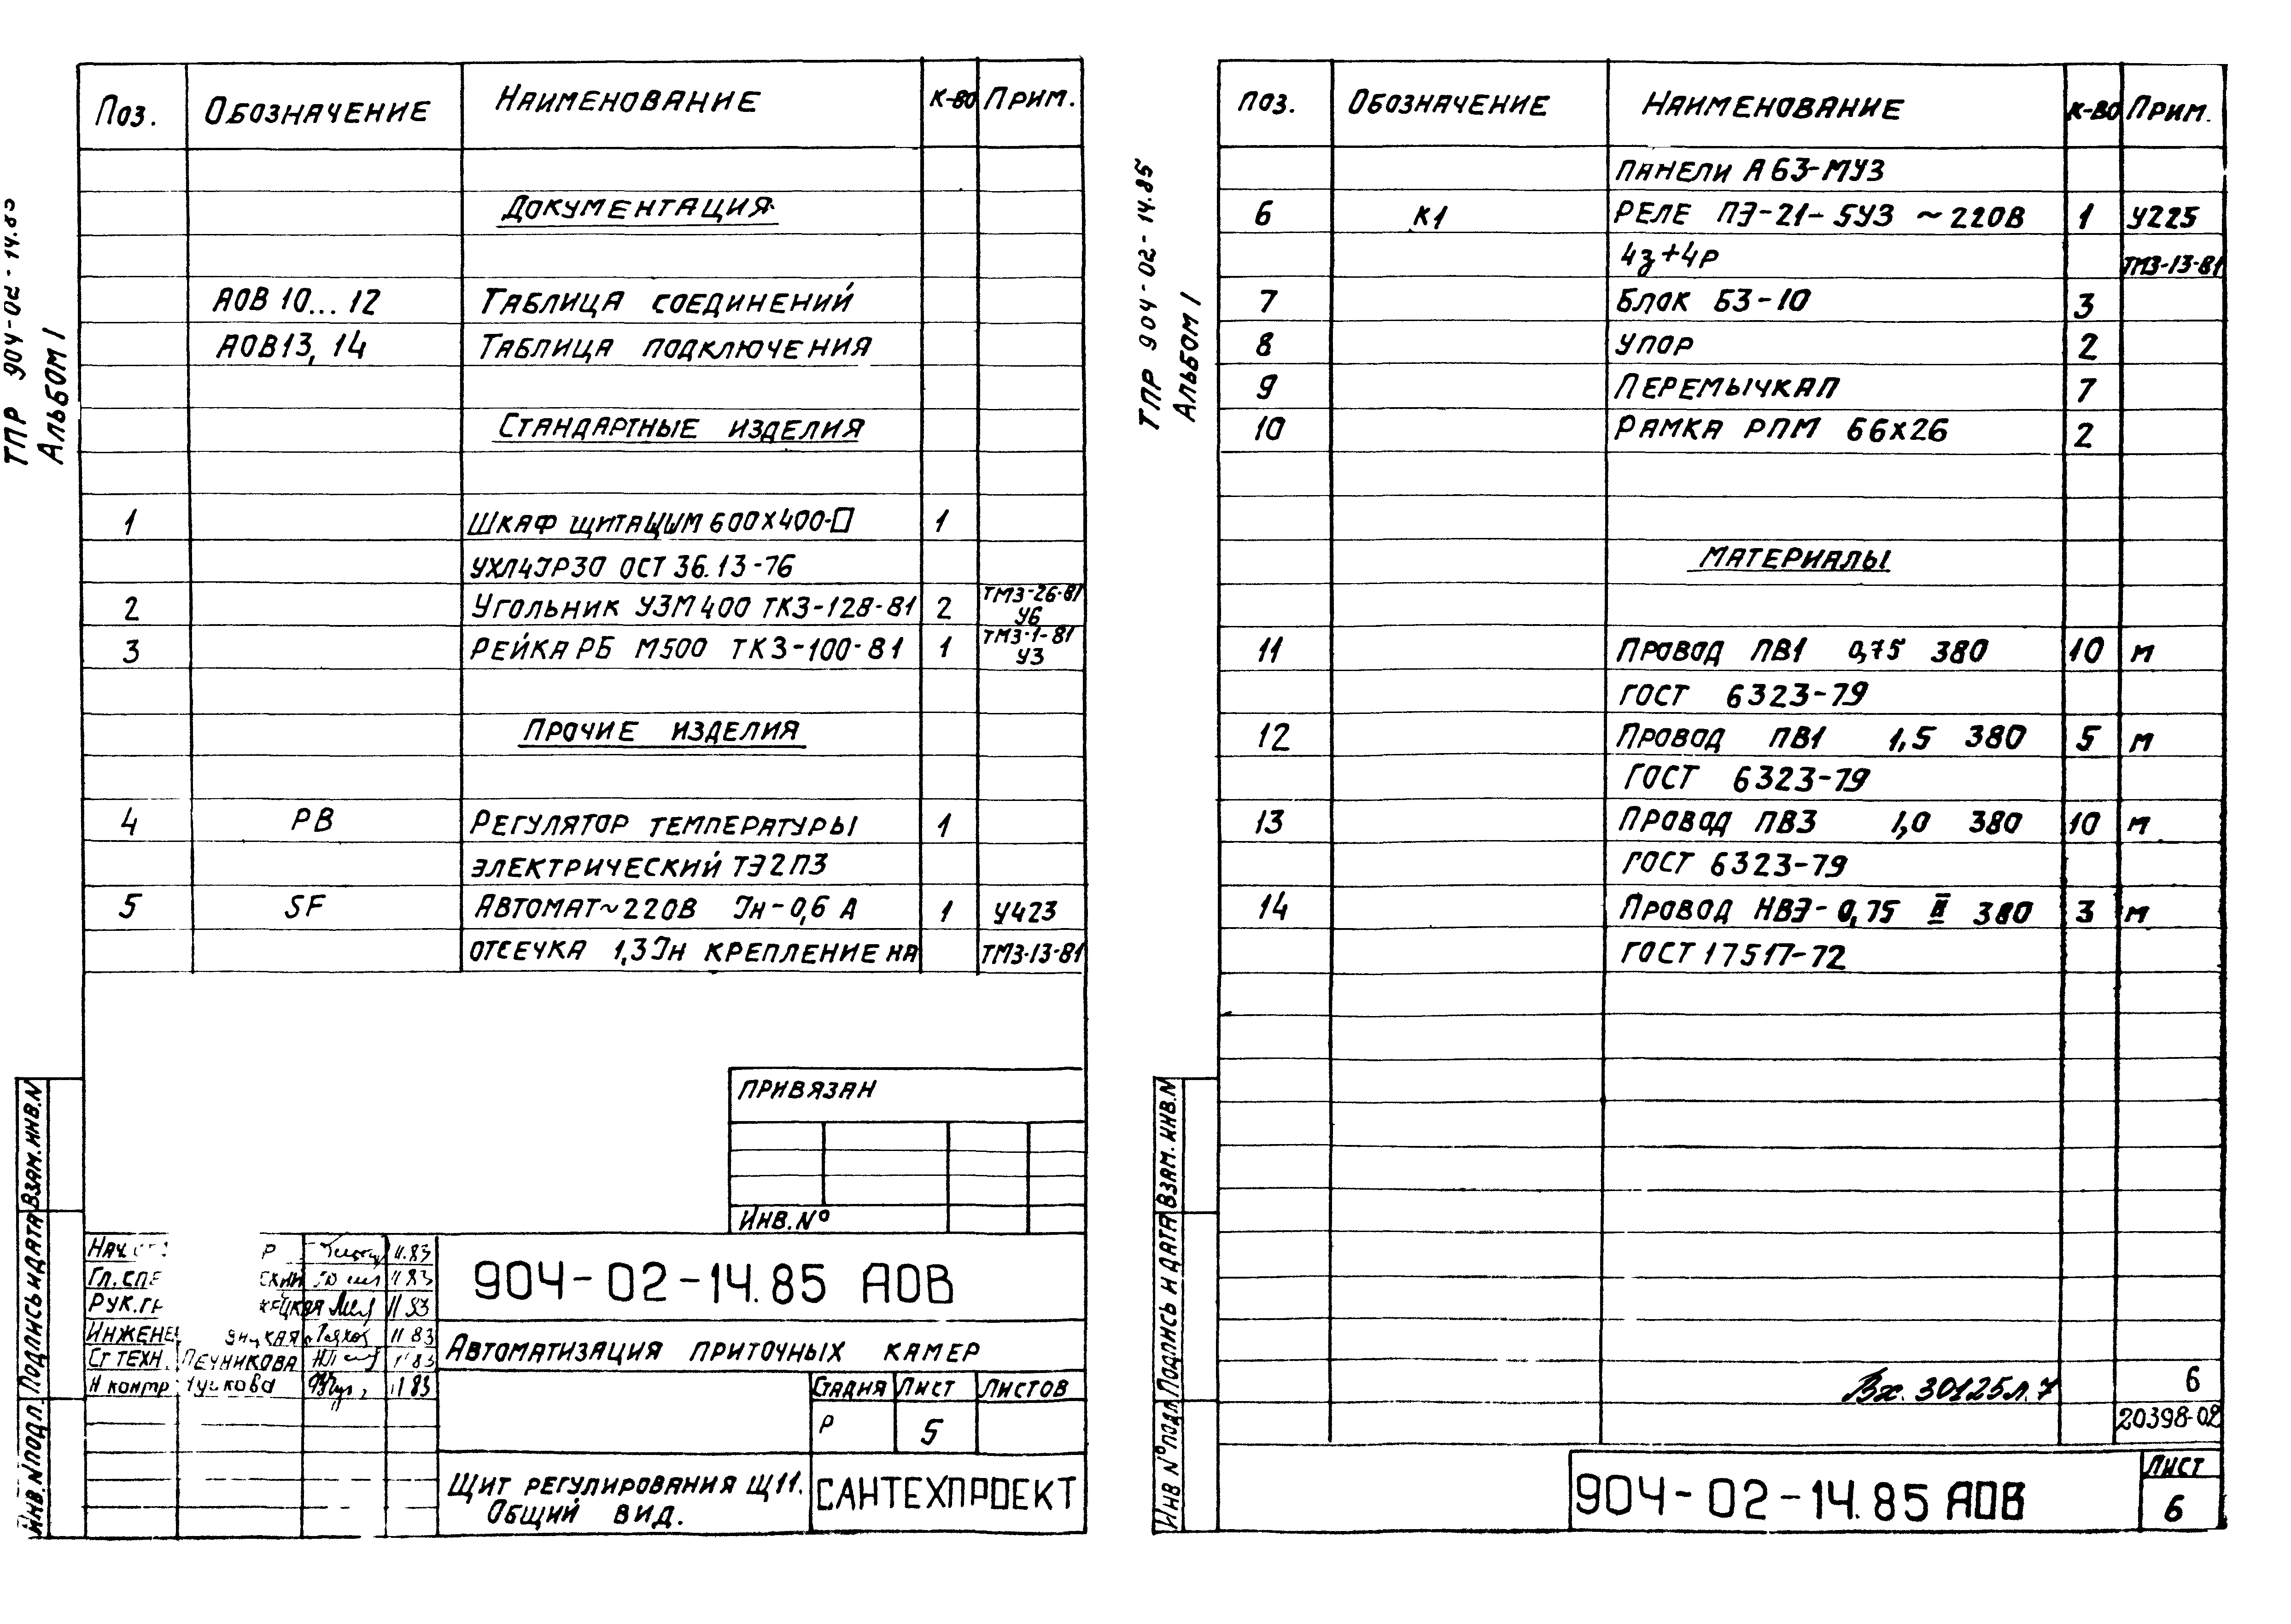 ТПР 904-02-14.85
Альбом 1
Поз. Обозначение Наименование К-во Прим.
Документация
АОВ 10...12 Таблица соединений
АОВ13, 14 Таблица подключения
Стандартные изделия
1 Шкаф щита ЩШМ 600х400-П 1
УХЛ4 IР30 ОСТ 36.13-76
2 Угольник УЗМ 400 ТК3-128-81 2 ТМ3-26-81 У6
3 Рейка РБ М500 ТК3-100-81 1 ТМ3-1-81 У3
Прочие изделия
4 РВ Регулятор температуры 1
электрический ТЭ2П3
5 SF Автомат ~220В Iн-0,6 А 1 У423
отсечка 1,3 Iн крепление на ТМ3-13-81
Привязан
Инв. №
Нач. 11.83
Гл. спе 11 83
Рук. гр 11 83
Инжене 11 83
Ст техн. Печникова 11 83
Н контр 11 83
904-02-14.85 АОВ
Автоматизация приточных камер
Стадия Лист Листов
Р 5
Щит регулирования Щ11.
Общий вид.
САНТЕХПРОЕКТ
Инв. N подл. Подпись и дата Взам. инв. N
ТПР 904-02-14.85
Альбом 1
Поз. Обозначение Наименование К-во Прим.
панели А63-МУ3
6 К1 Реле ПЭ-21-5У3 ~220В 1 У225
4з+4р ТМ3-13-81
7 Блок БЗ-10 3
8 Упор 2
9 Перемычка П 7
10 Рамка РПМ 66х26 2
Материалы
11 Провод ПВ1 0,75 380 10 м
ГОСТ 6323-79
12 Провод ПВ1 1,5 380 5 м
ГОСТ 6323-79
13 Провод ПВ3 1,0 380 10 м
ГОСТ 6323-79
14 Провод НВЭ-0,75 II 380 3 м
ГОСТ 17517-72
Вх. 30125 л. 7 6
20398-02
904-02-14.85 АОВ
Лист
6
Инв N° подл. Подпись и дата Взам. инв. N